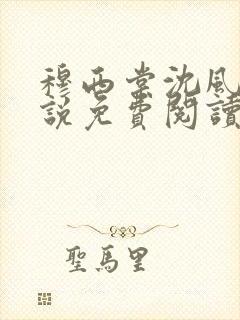 穆西棠沈風
說免費閱讀
聖馬里